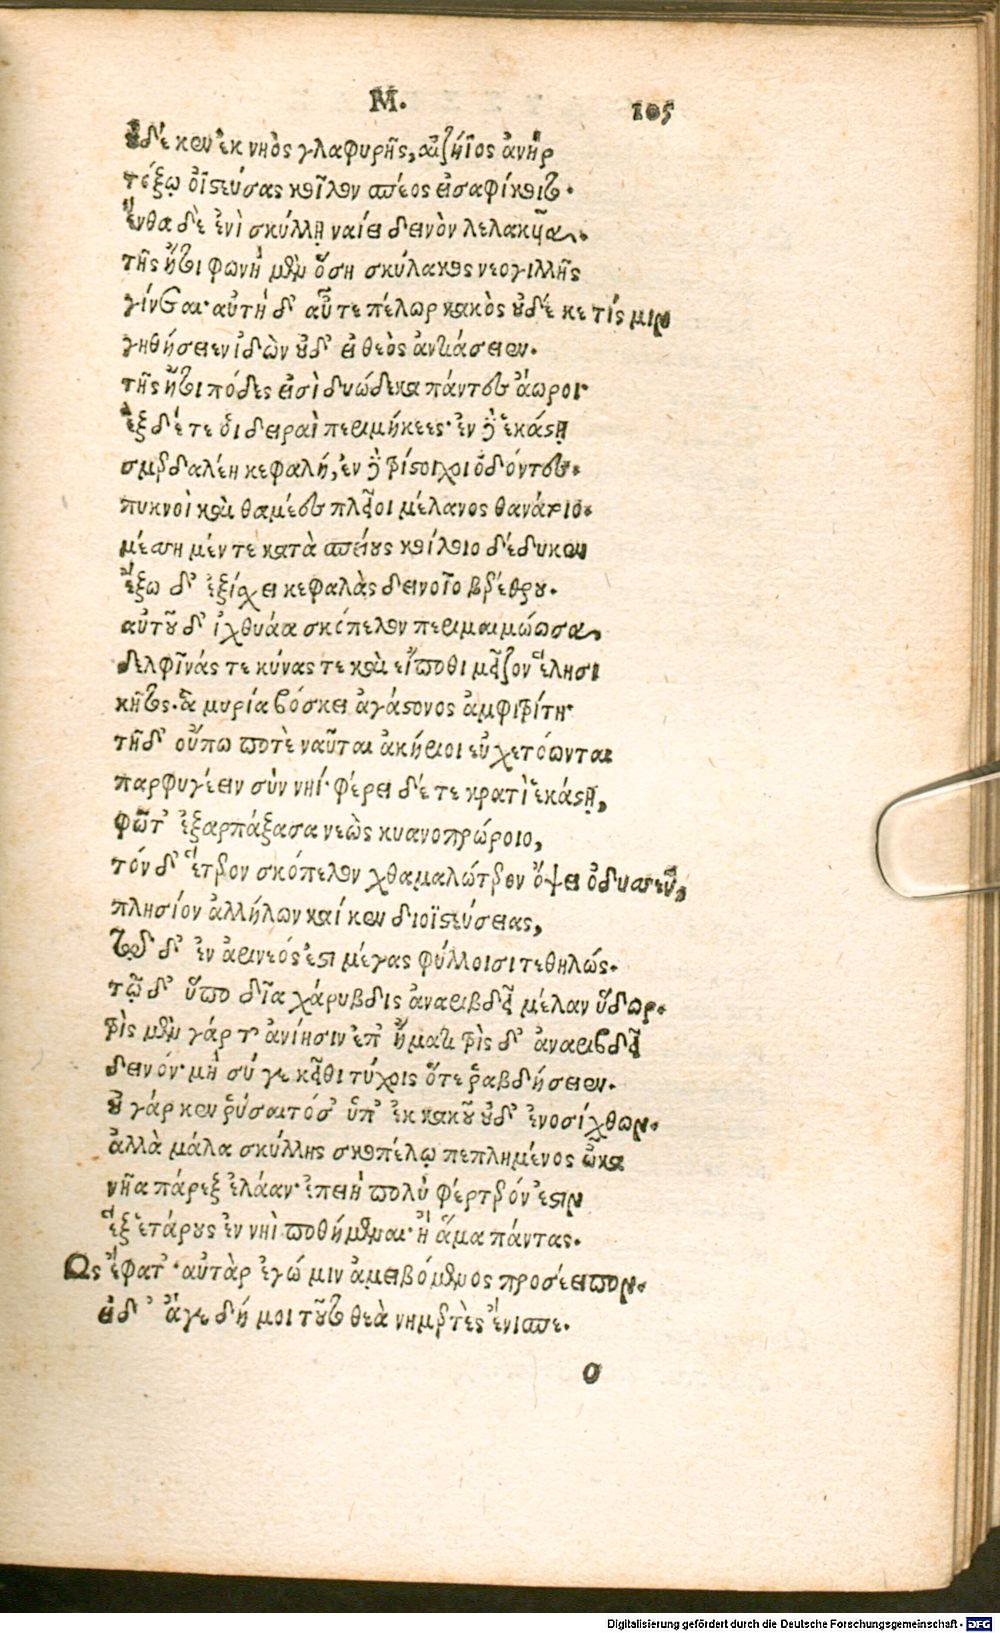 Μ. 105
οὐδέ κεν ἐκ νηὸς γλαφυρῆς, αἰζήϊος ἀνὴρ
τόξῳ ὀϊστεύσας κοῖλον σπέος εἰσαφίκοιτο.
ἔνθα δὲ ἐνὶ σκύλλη ναίει δεινὸν λελακυῖα.
τῆς ἤτοι φωνὴ μὲν ὅση σκύλακος νεογιλλῆς
γίνεται· αὐτὴ δ' αὖτε πέλωρ κακὸς οὐδέ κε τίς μιν
γηθήσειεν ἰδὼν οὐδ' εἰ θεὸς ἀντιάσειεν.
τῆς ἤτοι πόδες εἰσὶ δυώδεκα πάντες ἄωροι·
ἓξ δέ τε οἱ δειραὶ περιμήκεες· ἐν δὲ ἑκάστῃ
σμερδαλέη κεφαλή, ἐν δὲ τρίστοιχοι ὀδόντες.
πυκνοὶ καὶ θαμέες πλεῖοι μέλανος θανάτοιο.
μέσση μέν τε κατὰ σπείους κοίλοιο δέδυκεν
ἔξω δ' ἐξίσχει κεφαλὰς δεινοῖο βερέθρου.
αὐτοῦ δ' ἰχθυάα σκόπελον περιμαιμώωσα,
δελφῖνάς τε κύνας τε καὶ εἴποθι μεῖζον ἕλησι
κῆτος. ἃ μυρία βόσκει ἀγάστονος ἀμφιτρίτη·
τῇ δ' οὔπω ποτὲ ναῦται ἀκήριοι εὐχετόωνται
παρφυγέειν σὺν νηί· φέρει δέ τε κρατὶ ἑκάστῃ,
φῶτ' ἐξαρπάξασα νεὼς κυανοπρώροιο,
τόν δ' ἕτερον σκόπελον χθαμαλώτερον ὄψει ὀδυσσεῦ,
πλησίον ἀλλήλων καί κεν διοϊστεύσειας,
τῷ δ' ἐν ἐρινεός ἐστι μέγας φύλλοισι τεθηλώς.
τῷ δ' ὕπο δῖα χάρυβδις ἀναρυβδεῖ μέλαν ὕδωρ.
τρὶς μὲν γάρ τ' ἀνίησιν ἐπ' ἤματι τρὶς δ' ἀναρυβδεῖ
δεινόν· μὴ σύ γε κεῖθι τύχοις ὅτε ῥαβδήσειεν.
οὐ γάρ κεν ῥύσαιτό σ' ὑπ' ἐκ κακοῦ οὐδ' ἐνοσίχθων.
ἀλλὰ μάλα σκύλλης σκοπέλῳ πεπλημένος ὦκα
νῆα πάρεξ ἐλάαν· ἐπειὴ πολὺ φέρτερόν ἐστιν
ἓξ ἑτάρους ἐν νηὶ ποθήμεναι· ἢ ἅμα πάντας.
Ὣς ἔφατ'· αὐτὰρ ἐγώ μιν ἀμειβόμενος προσέειπον.
εἰ δ' ἄγε δή μοι τοῦτο θεὰ νημερτὲς ἔνισπε.
O
Digitalisierung gefördert durch die Deutsche Forschungsgemeinschaft - DFG